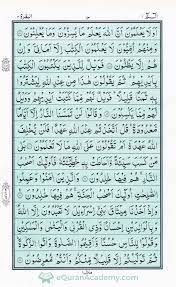 البقرة ٢
١٣
الٓمّٓ ١
اَوَلَا يَعْلَمُوْنَ اَنَّ اللّٰهَ يَعْلَمُ مَا يُسِرُّوْنَ وَمَا يُعْلِنُوْنَ
وَمِنْهُمْ اُمِّيُّوْنَ لَا يَعْلَمُوْنَ الْكِتٰبَ اِلَّآ اَمَانِيَّ وَاِنْ
هُمْ اِلَّا يَظُنُّوْنَ فَوَيْلٌ لِّلَّذِيْنَ يَكْتُبُوْنَ الْكِتٰبَ
بِاَيْدِيْهِمْ ثُمَّ يَقُوْلُوْنَ هٰذَا مِنْ عِنْدِ اللّٰهِ لِيَشْتَرُوْا
بِهٖ ثَمَنًا قَلِيْلًا فَوَيْلٌ لَّهُمْ مِّمَّا كَتَبَتْ اَيْدِيْهِمْ وَوَيْلٌ
لَّهُمْ مِّمَّا يَكْسِبُوْنَ وَقَالُوْا لَنْ تَمَسَّنَا النَّارُ اِلَّآ اَيَّامًا
مَّعْدُوْدَةً قُلْ اَتَّخَذْتُمْ عِنْدَ اللّٰهِ عَهْدًا فَلَنْ يُّخْلِفَ
اللّٰهُ عَهْدَهٗٓ اَمْ تَقُوْلُوْنَ عَلَى اللّٰهِ مَا لَا تَعْلَمُوْنَ بَلٰى
مَنْ كَسَبَ سَيِّئَةً وَّاَحَاطَتْ بِهٖ خَطِيْٓئَتُهٗ فَاُولٰٓئِكَ
اَصْحٰبُ النَّارِ هُمْ فِيْهَا خٰلِدُوْنَ وَالَّذِيْنَ اٰمَنُوْا وَعَمِلُوا
الصّٰلِحٰتِ اُولٰٓئِكَ اَصْحٰبُ الْجَنَّةِ هُمْ فِيْهَا خٰلِدُوْنَ
وَاِذْ اَخَذْنَا مِيْثَاقَ بَنِيْٓ اِسْرَآءِيْلَ لَا تَعْبُدُوْنَ اِلَّا اللّٰهَ
وَبِالْوَالِدَيْنِ اِحْسَانًا وَّذِي الْقُرْبٰى وَالْيَتٰمٰى وَالْمَسٰكِيْنِ
وَقُوْلُوْا لِلنَّاسِ حُسْنًا وَّاَقِيْمُوا الصَّلٰوةَ وَاٰتُوا الزَّكٰوةَ
eQuranAcademy.com